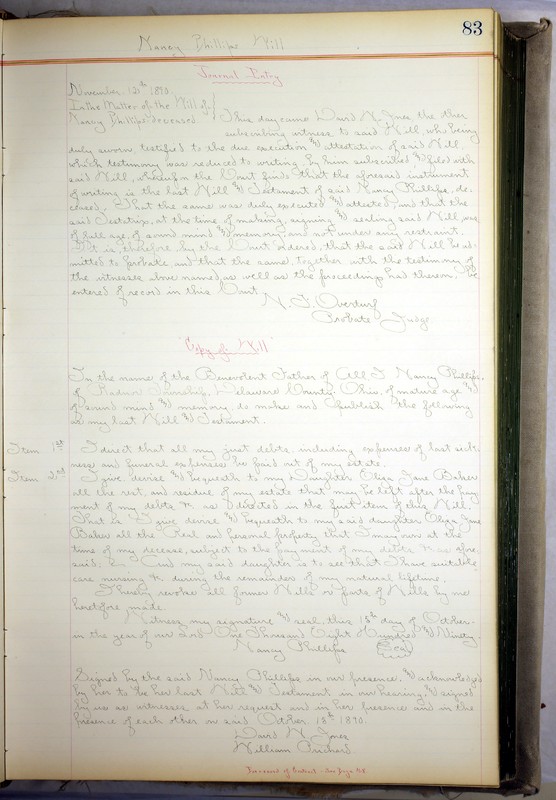 83
Nancy Phillips Will
Journal Entry
November 12th 1890.
In the Matter of the Will of
Nancy Phillips deceased. This day came David N. Jones the other
subscribing witness to said Will, who being
duly sworn, testified to the due execution and attestation of said Will,
which testimony was reduced to writing, by him subscribed and filed with
said Will, whereupon the Court finds that the aforesaid instrument
of writing is the last Will and Testament of said Nancy Phillips, de-
ceased. That the same was duly executed and attested, and that the
said Testatrix, at the time of making, signing and sealing said Will, was
of full age, of sound mind and memory, and not under any restraint.
It is therefore by the Court ordered, that the said Will be ad-
mitted to probate, and that the same, together with the testimony of
the witnesses above named, as well as the proceedings had thereon, be
entered of record in this Court.
N. F. Overturf
Probate Judge
Copy of Will
In the name of the Benevolent Father of All. I Nancy Phillips,
of Radnor Township, Delaware County, Ohio, of mature age and
of sound mind and memory, do make and Publish the following
as my last Will and Testament.
Item 1st I direct that all my just debts, including expenses of last sick-
ness and funeral expenses be paid out of my estate.
Item 2nd I give, devise and bequeath to my daughter Oliga Jane Baker
all the rest and residue of my estate that may be left after the pay-
ment of my debts &c as directed in the first item of this Will.
That is I give devise and bequeath to my said daughter Oliga Jane
Baker all the Real and personal property that I may own at the
time of my decease, subject to the payment of my debts &c as afore-
said, &c. And my said daughter is to see that I have suitable
care nursing &c during the remainder of my natural lifetime.
I hereby revoke all former Wills or parts of Wills by me
heretofore made.
Witness my signature and seal, this 18th day of October
in the year of our Lord One Thousand Eight Hundred and Ninety.
Nancy Phillips Seal
Signed by the said Nancy Phillips in our presence, and acknowledged
by her to be her last Will and Testament in our hearing, and signed
by us as witnesses at her request and in her presence and in the
presence of each other on said October 18th 1890.
David N. Jones
William Prichard